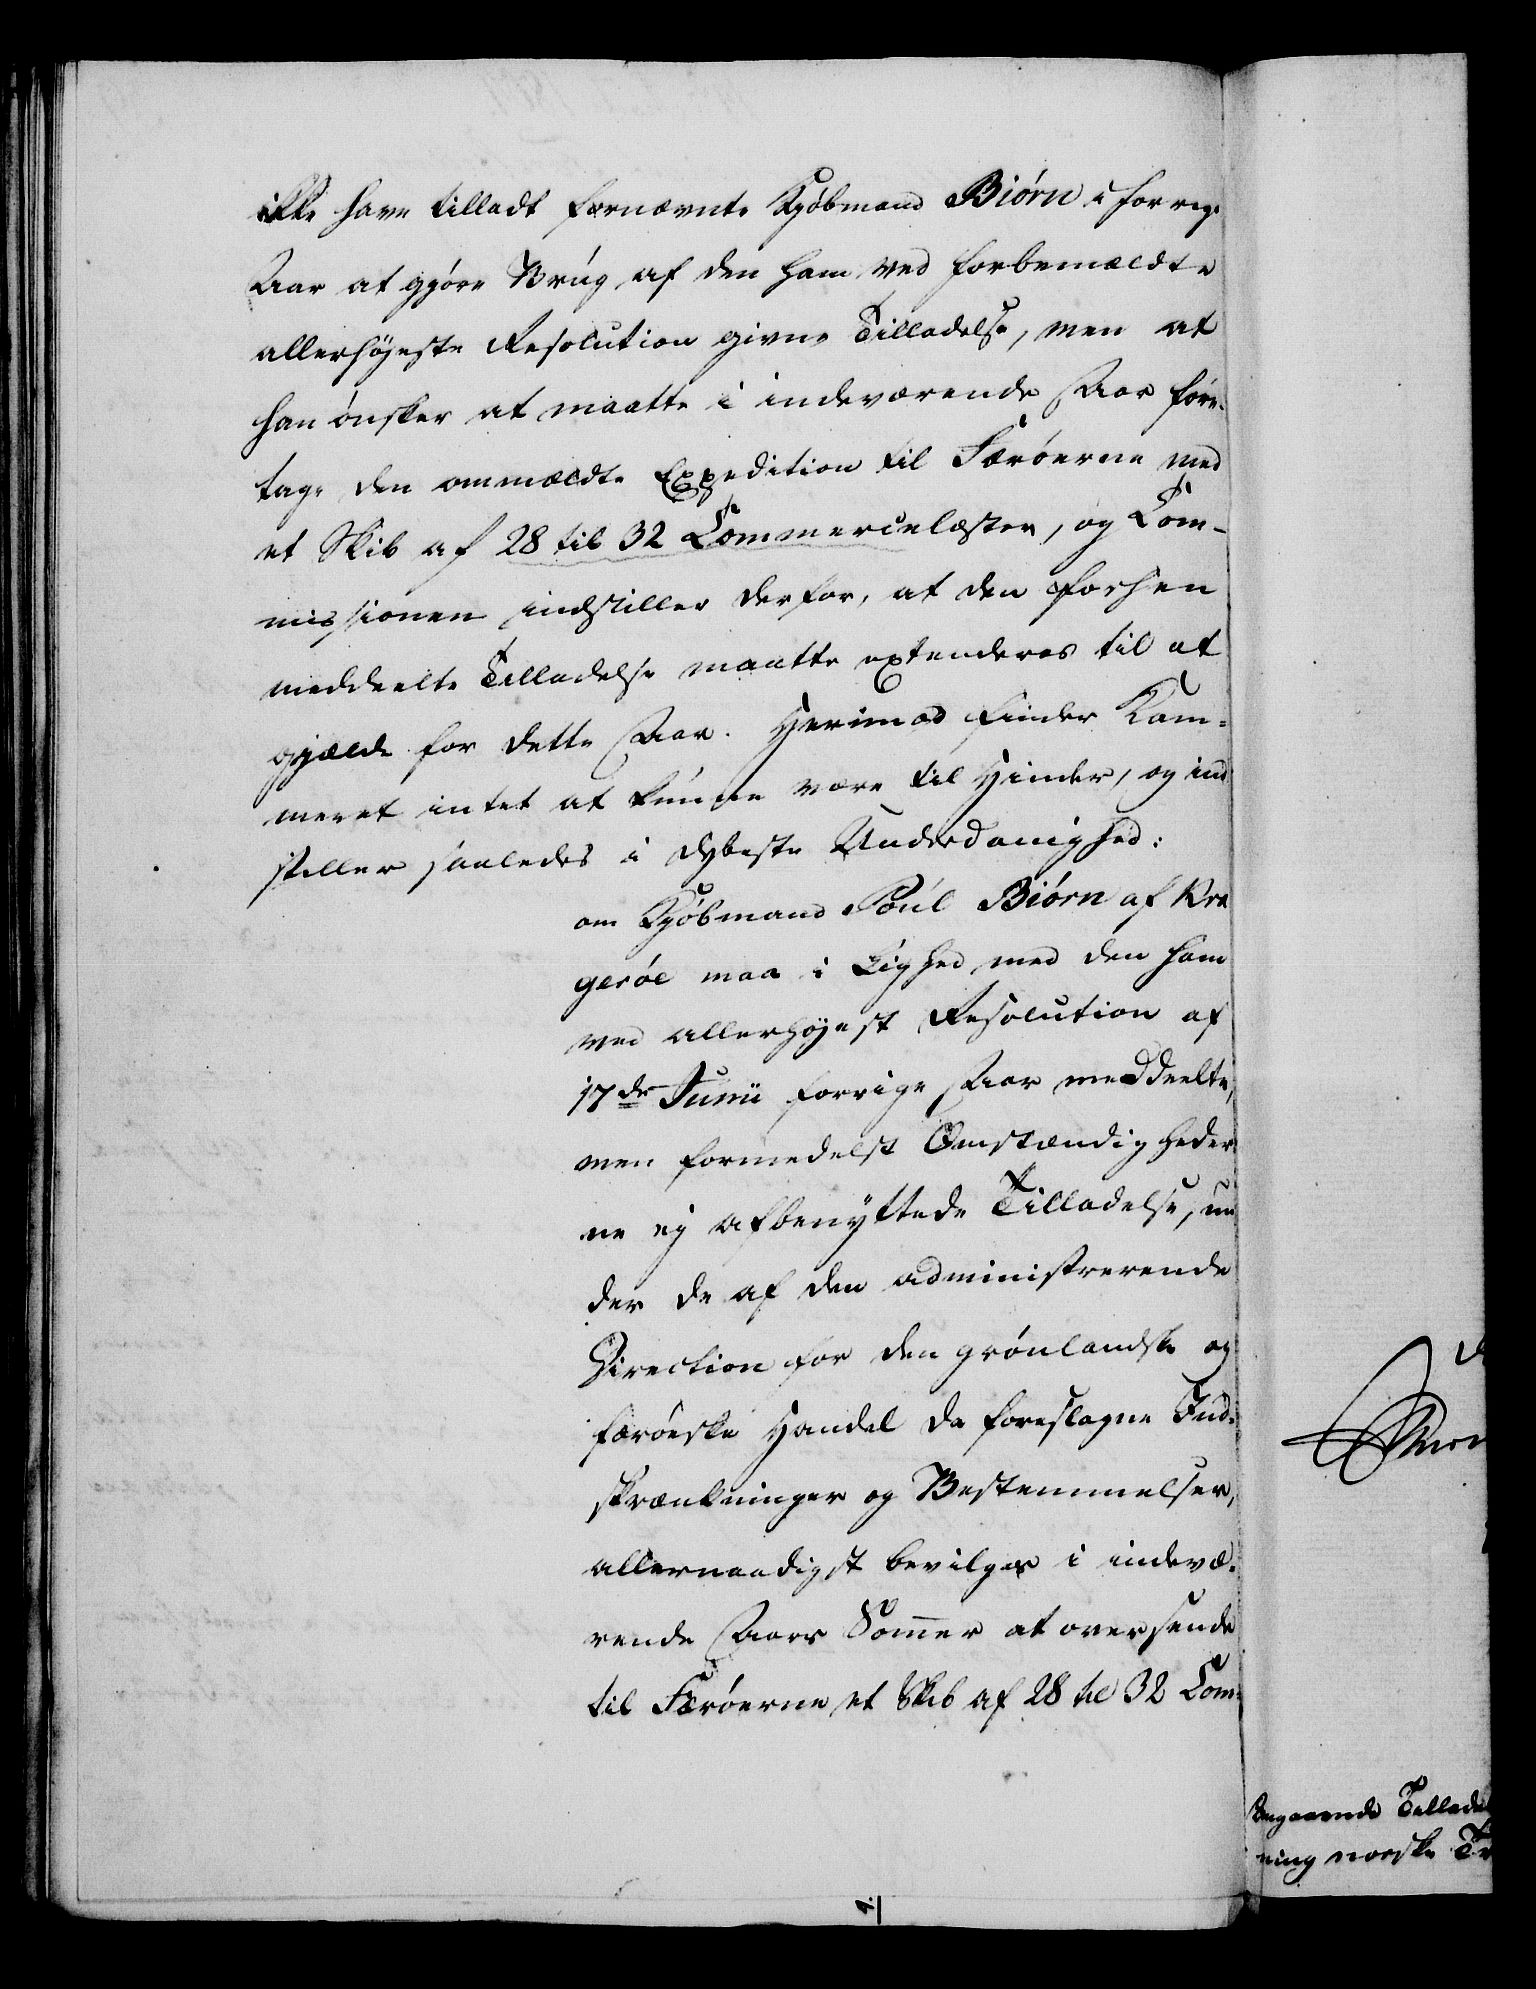 ikke have tilladt fornævnte Kjøbmand Biørn i forrige
Aar at gjøre Brug af den ham ved forbemældte
allerhøjeste Resolution givne Tilladelse, men at
han ønsker at maatte i indeværende Aar fore-
tage den ommældte Expedition til Færøerne med
et Skib af 28 til 32 Commercelæster, og Com-
missionen indstiller derfor, at den forhen
meddeelte Tilladelse maatte extenderes til at
gjælde for dette Aar. Herimod finder Kam-
meret intet at kunne være til Hinder, og ind
stiller saaledes i dybeste Underdanighed:
om Kjøbmand Poul Biørn af Kra
gerøe maa i Lighed med den ham
ved allerhøjest Resolution af
17de Junii forrige Aar meddeelte,
men formedelst Omstændigheder
ne ej afbenyttede Tilladelse, un
der de af den administrerende
Direction for den grønlandske og
færøeske Handel da foreslagne Ind-
skrænkninger og Bestemmelser,
allernaadigst bevilges i indevæ-
rende Aars Sommer at oversende
til Færøerne et Skib af 28 til 32 Com-
Angaaende Tillade
ning norske